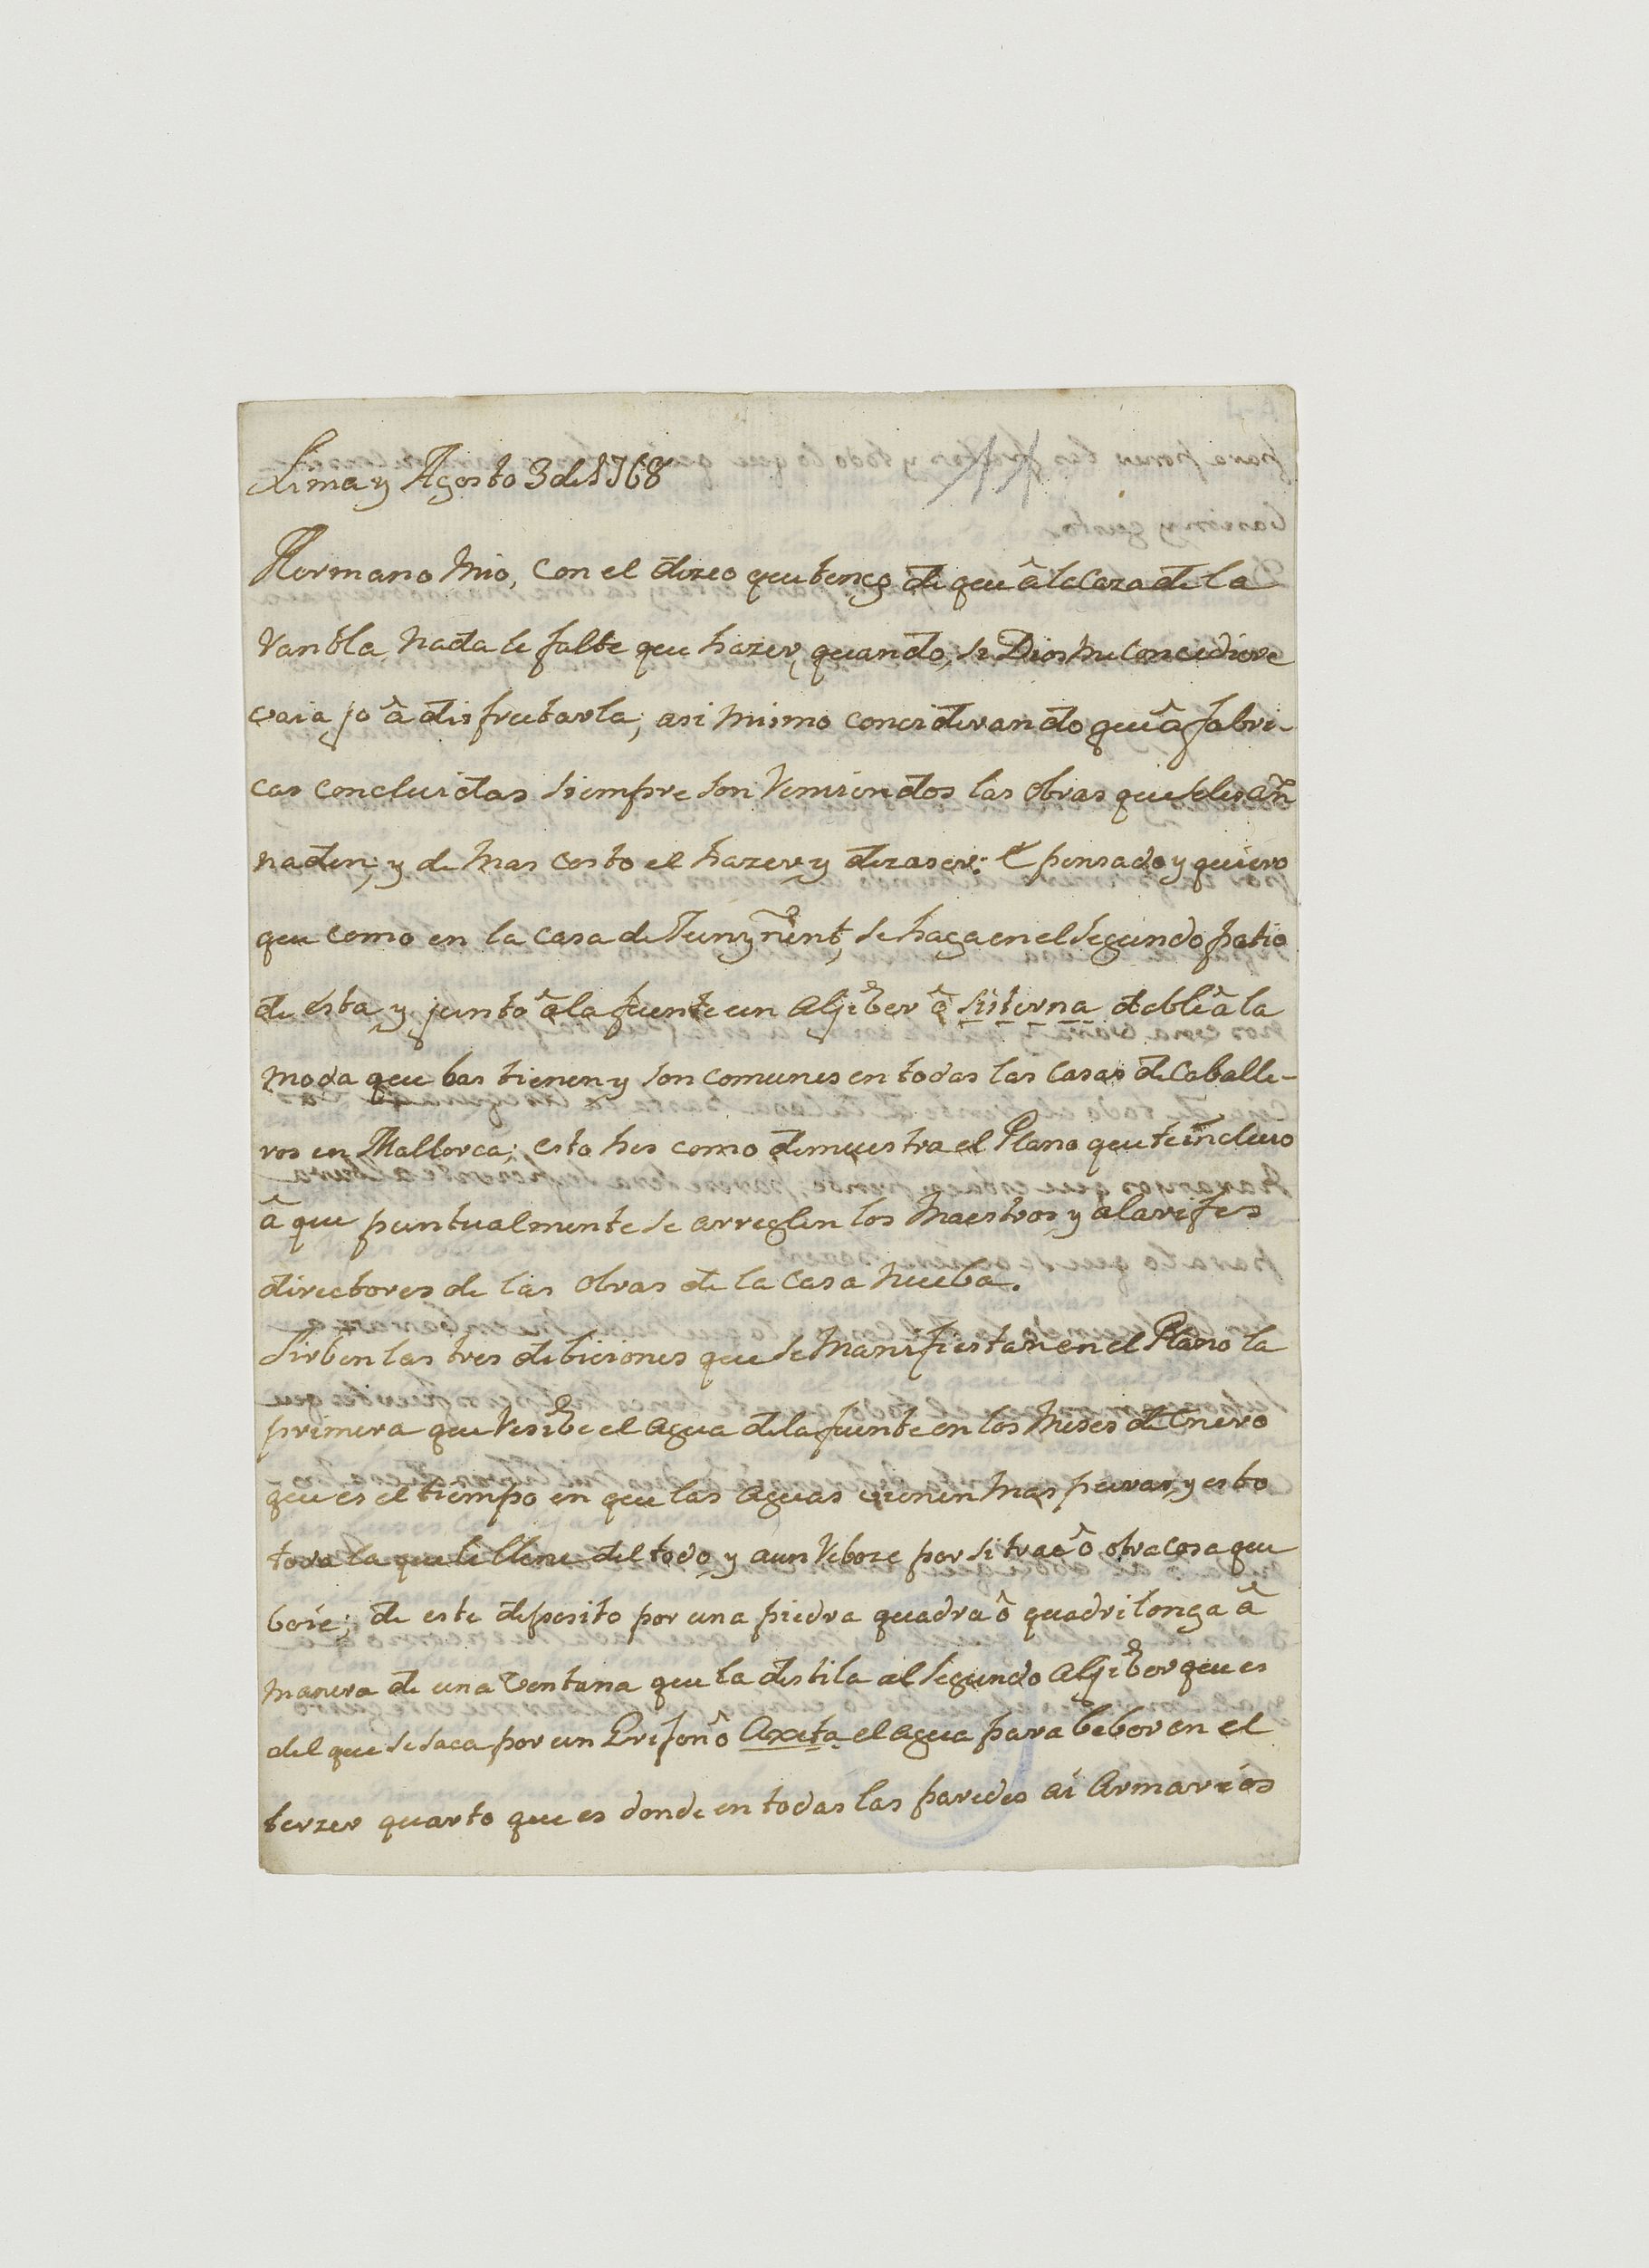 Lima y Agosto 3 de 1768
Hermano mio, con el dezeo que tengo de que â la Caza de la
Rambla nada le falte que hazer, quando, si Dios me concediere
vaia jo â disfrutarla; asi mismo conciderando que â fabri-
cas concluidas siempre son Remiendos las obras que seles añ
naden; y de mas costo el hazer y dezaser: E pensado y quiero
que como en la casa de se haga en el segundo patio
de esta y junto â la fuente un Aljiber ô Sisterna doble â la
moda que las tienen y son comunes en todas las casas de Caballe-
ros en Mallorca; esto hes como demuestra el Plano que te incluio
â que puntualmente se arreglen los Maestros y alarifes
directores de las obras de la casa nueba.
Sirben las tres debiciones que se Manifiestan en el Plano la
primera que Resibe el agua de la fuente en los Meses de Enero
que es el tiempo en que las aguas vienen mas puras, y esto
toda la que le llene del todo y aun Reboze por si trae ô otra cosa que
boie; de este deposito por una piedra quadra ô quadrilonga â
manera de una ventana que la destila al segundo Aljiber que es
del que se saca por un Grifon ô Axeta el agua para beber en el
terzer quarto que es donde en todas las paredes ai Armarios